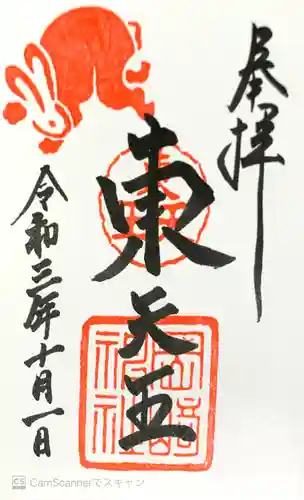 奉拝
東天王
岡崎
神社
令和三年十月一日
CS CamScannerでスキャン